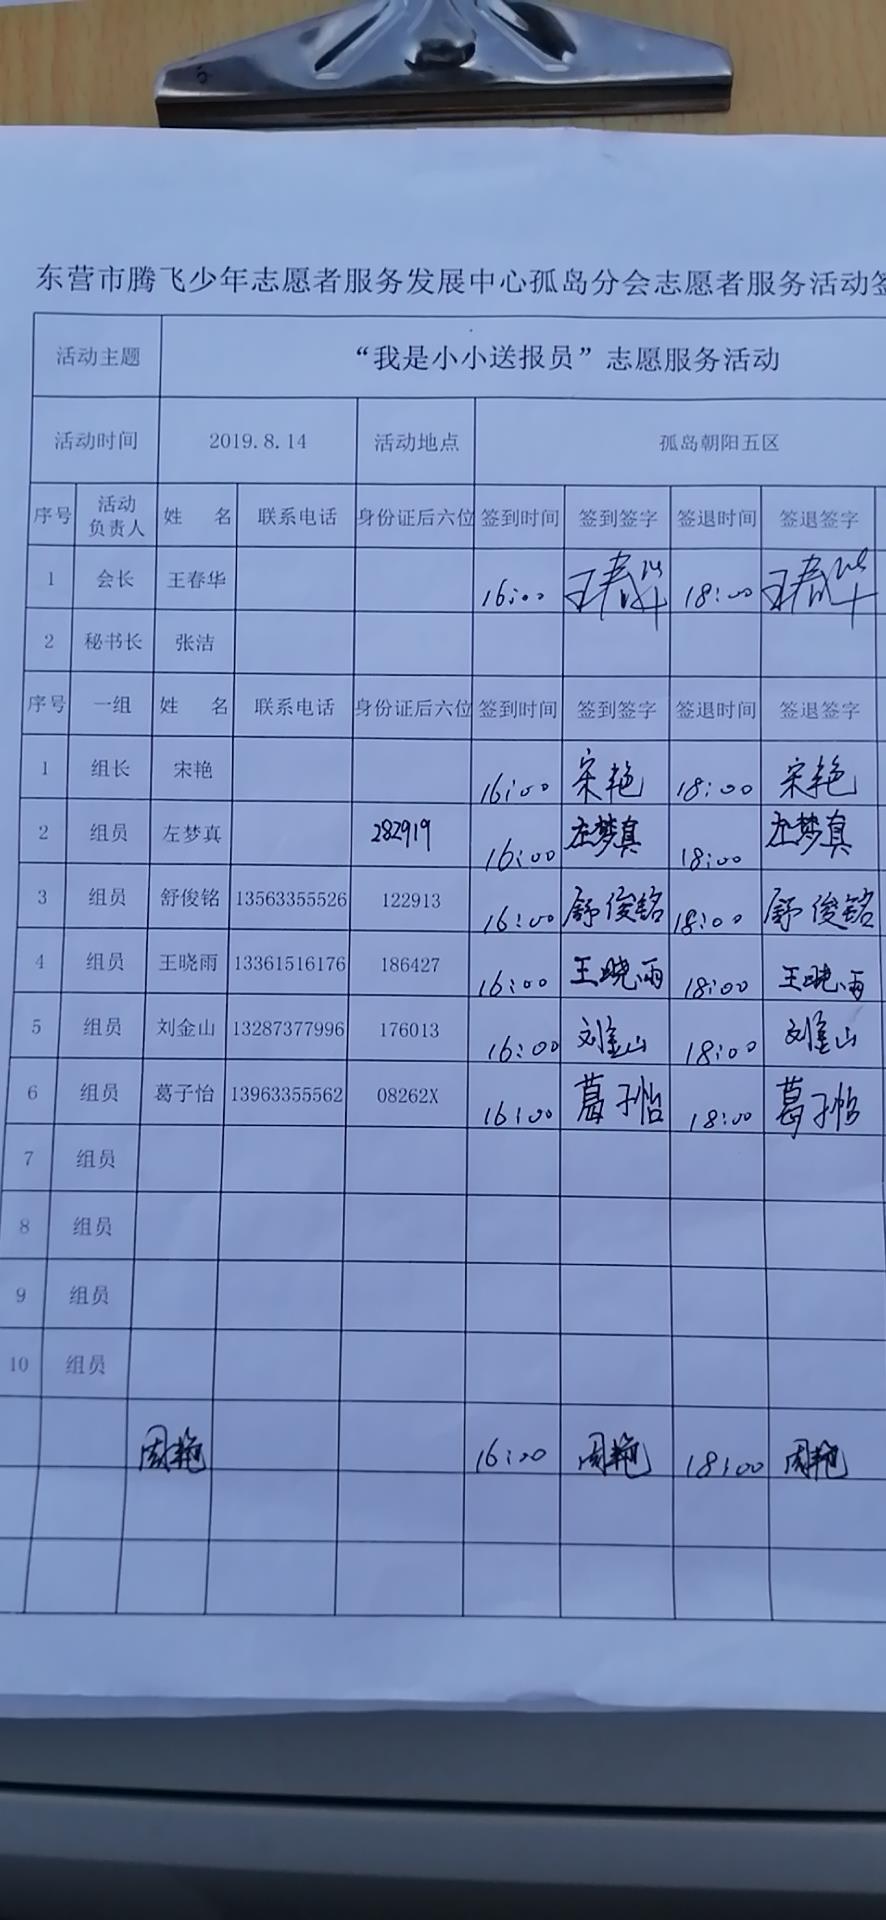 东营市腾飞少年志愿者服务发展中心孤岛分会志愿者服务活动签
活动主题 “我是小小送报员”志愿服务活动
活动时间 2019.8.14 活动地点 孤岛朝阳五区
序号 活动负责人 姓 名 联系电话 身份证后六位 签到时间 签到签字 签退时间 签退签字
1 会长 王春华 16:00 王春华 18:00 王春华
2 秘书长 张洁
序号 一组 姓 名 联系电话 身份证后六位 签到时间 签到签字 签退时间 签退签字
1 组长 宋艳 16:00 宋艳 18:00 宋艳
2 组员 左梦真 282919 16:00 左梦真 18:00 左梦真
3 组员 舒俊铭 13563355526 122913 16:00 舒俊铭 18:00 舒俊铭
4 组员 王晓雨 13361516176 186427 16:00 王晓雨 18:00 王晓雨
5 组员 刘金山 13287377996 176013 16:00 刘金山 18:00 刘金山
6 组员 葛子怡 13963355562 08262X 16:00 葛子怡 18:00 葛子怡
7 组员
8 组员
9 组员
10 组员
周艳 16:00 周艳 18:00 周艳